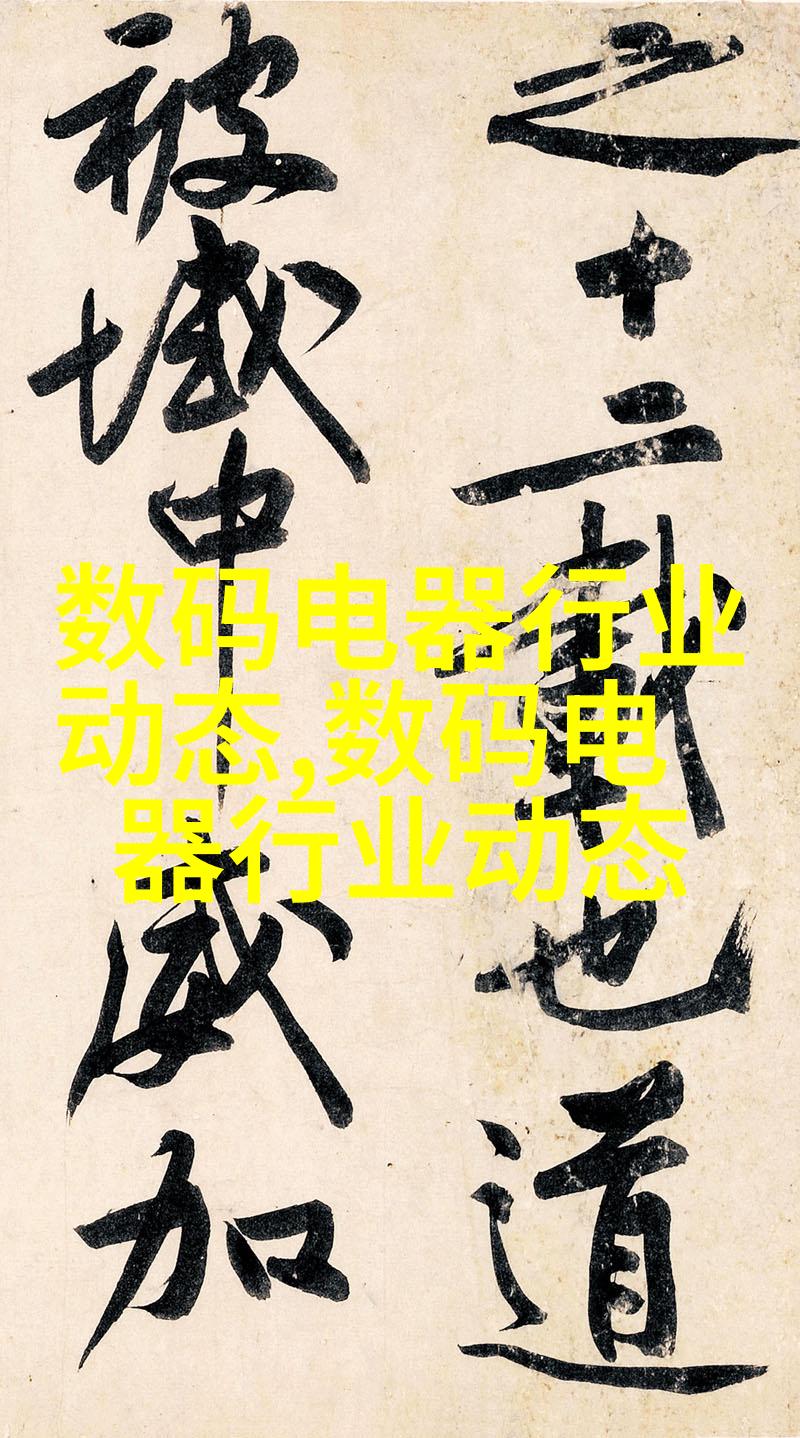 之十二載也道
被域中威加
数码电器行业
动态,数码电
器行业动态